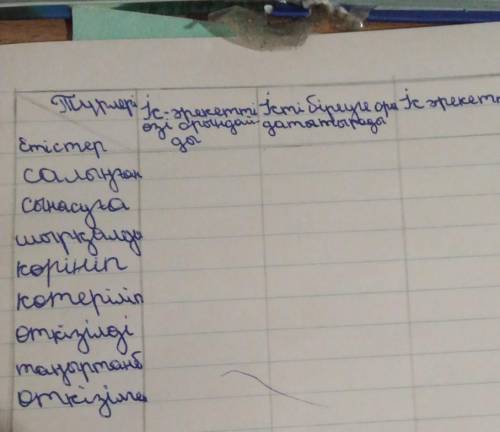 Түрлері
Іс-әрекетті өзі орындайды
Істі біреуге орындататтырады
Іс әрекетт
Етістер
салынған
сынасуға
шырқалды
көрініп
көтеріліп
өткізілді
таңыртанб
өткізілме